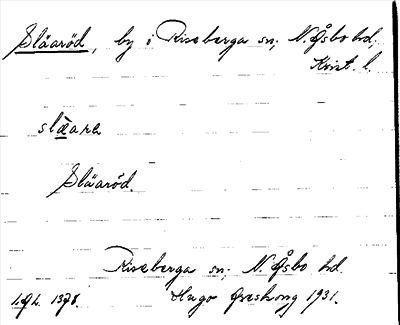 Släaröd, by i Riseberga sn; N. Åsbo hd;
Krist. l.
slä̀ara
Släaröd.
Riseberga sn; N. Åsbo hd.
Hugo Areskoug 1931.